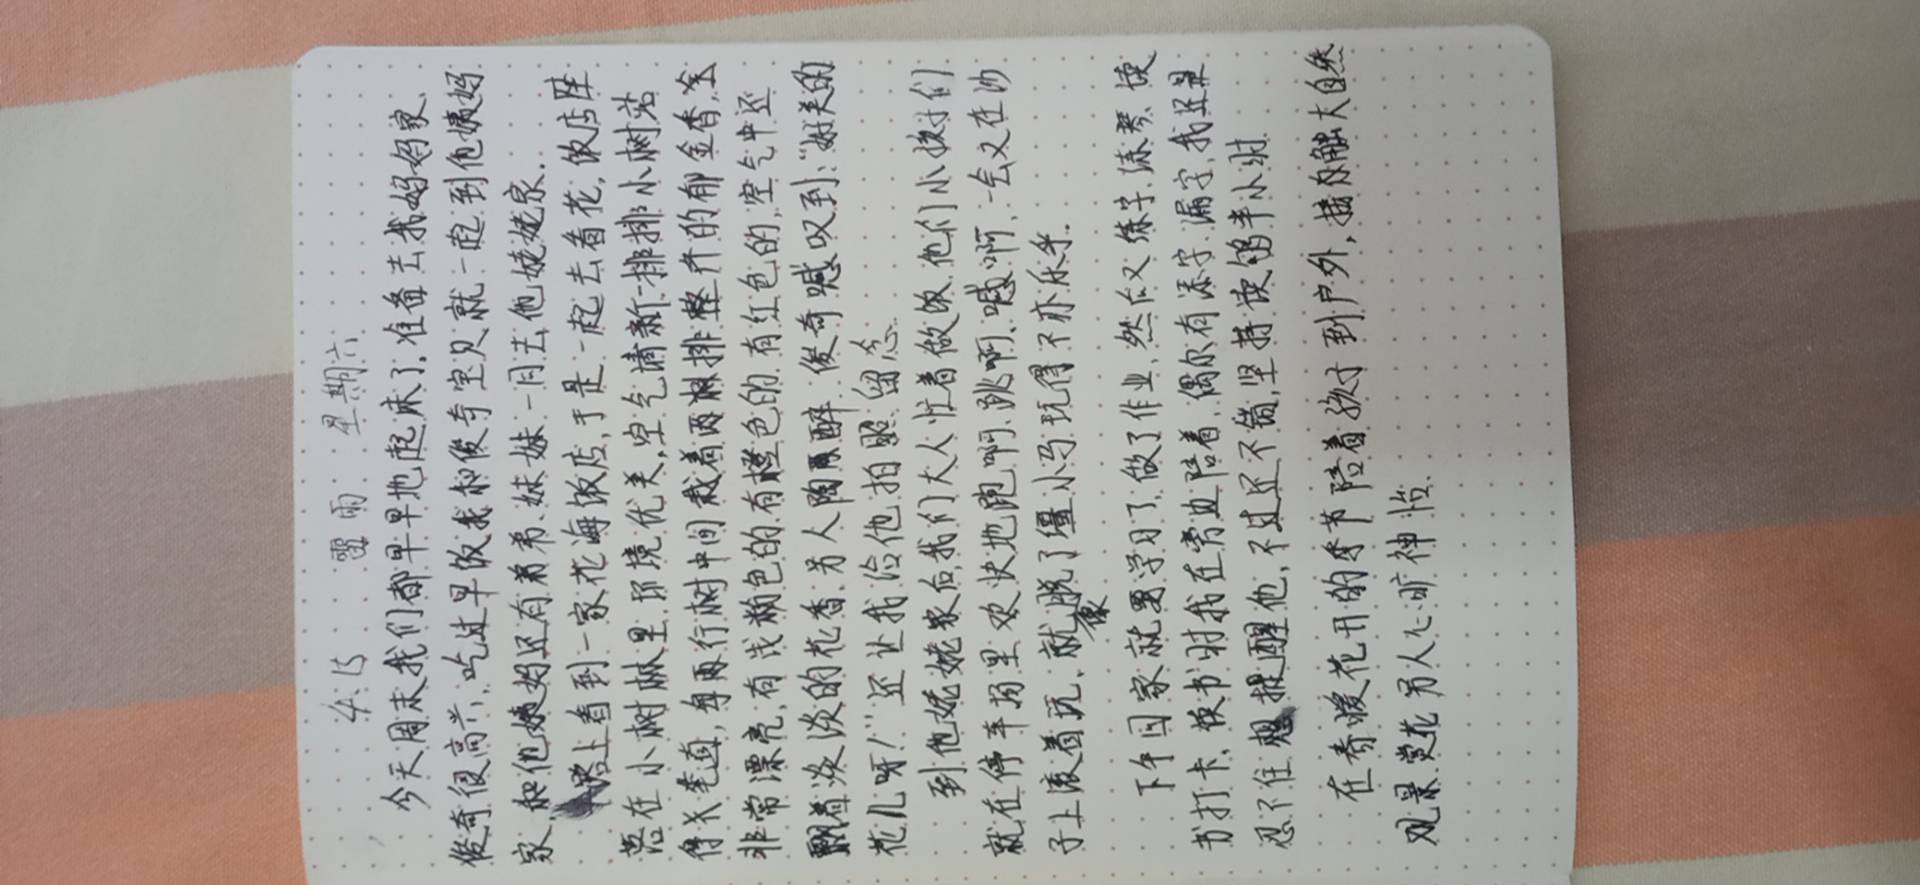 4.15 雷雨 星期六
今天周末我们都早早地起床了,准备去我妈妈家,
俊奇很高兴,吃过早饭我和俊奇宝贝就一起到他姨妈
家和他姨妈还有弟弟、妹妹一同去他姥姥家.
路上看到一家花海饭店,于是一起去看花,饭店座
落在小树林里,环境优美,空气清新,一排排小树站
得长笔直,每两行树中间栽着两排整齐的郁金香,金
非常漂亮,有浅粉色的有橙色的有红色的,空气中还
飘着淡淡的花香,另人陶醉 俊奇喊叹到:“好美的
花儿呀!”还让我给他拍照留念.
到他姥姥家后,我们大人忙着做饭,他们小孩子们
就在停车场里欢快地跑啊、跳啊、喊啊,一会又在沙
子上滚着玩,就像脱了缰小马玩得不亦乐乎.
下午回家就要学习了,做了作业,然后又练字、练琴、读
书打卡,读书时我在旁边陪着,偶尔有添字、漏字,我还是
忍不住想提醒他,不过还不错,坚持读够半小时.
在春暖花开的季节陪着孩子到户外,接触大自然
观景赏花另人心旷神怡.